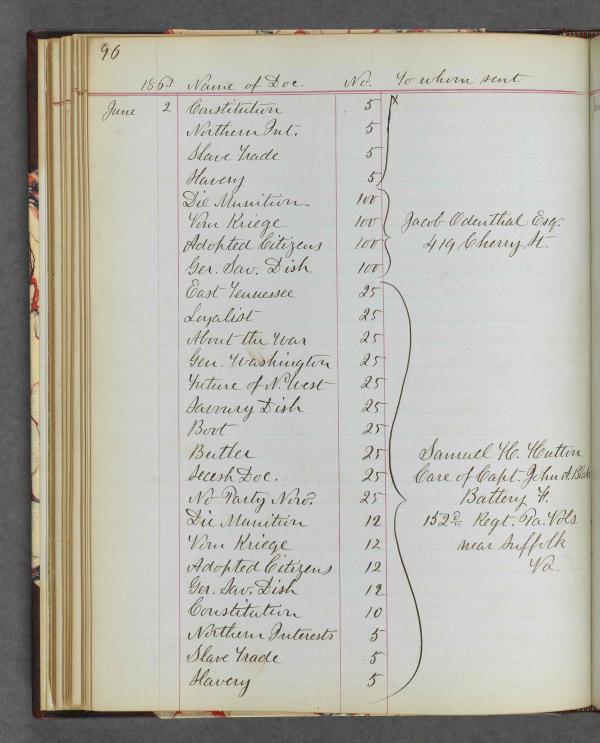 96
1863 Name of Doc. No. To whom sent
June 2 Constitution 5 x
Northern Int. 5
Slave Trade 5
Slavery 5
Die Munition 100
Vom Kriege 100 Jacob Odenthal Esq.
Adopted Citizens 100 419 Cherry St.
Ger. Sav. Dish 100
East Tennessee 25
Loyalist 25
About the War 25
Gen. Washington 25
Future of N. West 25
Savoury Dish 25
Boot 25
Butler 25 Samuel H. Hutton
Secesh Doc. 25 Care of Capt. John A.
No Party Now. 25 Battery
Die Munition 12 152d Regt. Pa. Vols.
Vom Kriege 12 near Suffolk
Adopted Citizens 12 Va.
Ger. Sav. Dish 12
Constitution 10
Northern Interests 5
Slave Trade 5
Slavery 5